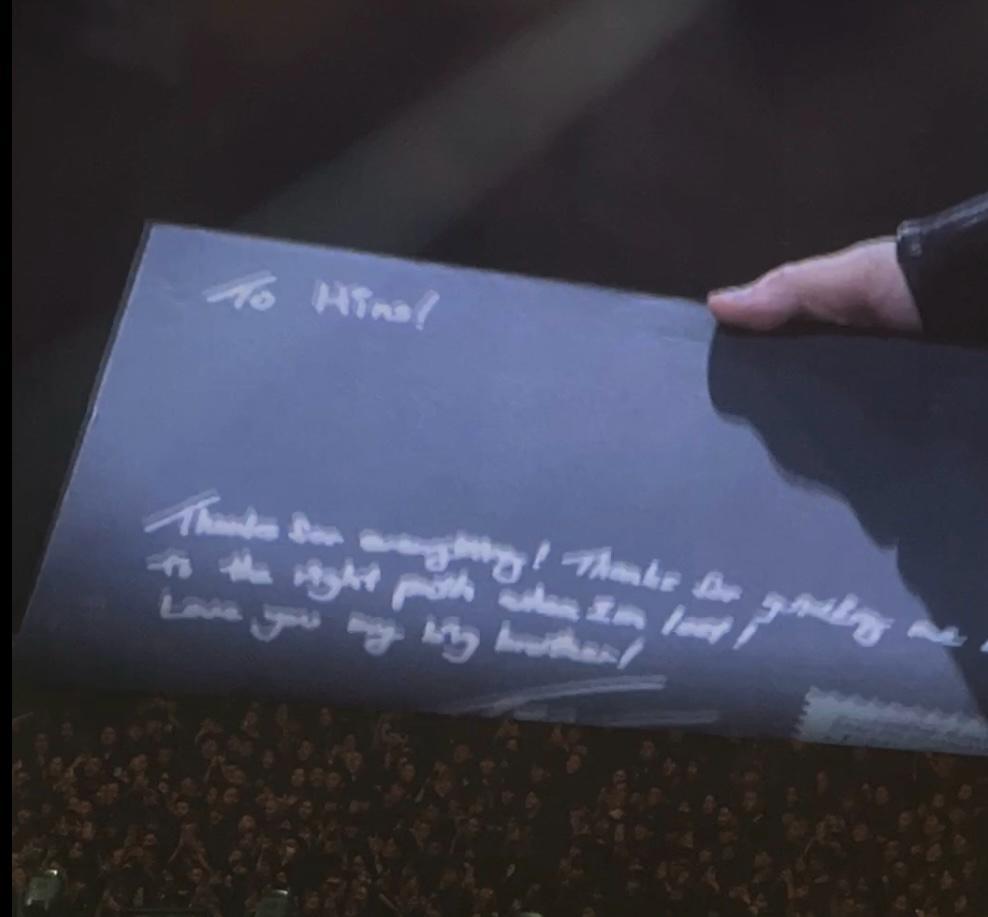 To Hins!
Thanks for everything! Thanks for guiding me
to the right path when Im lost!
Love you my big brother!